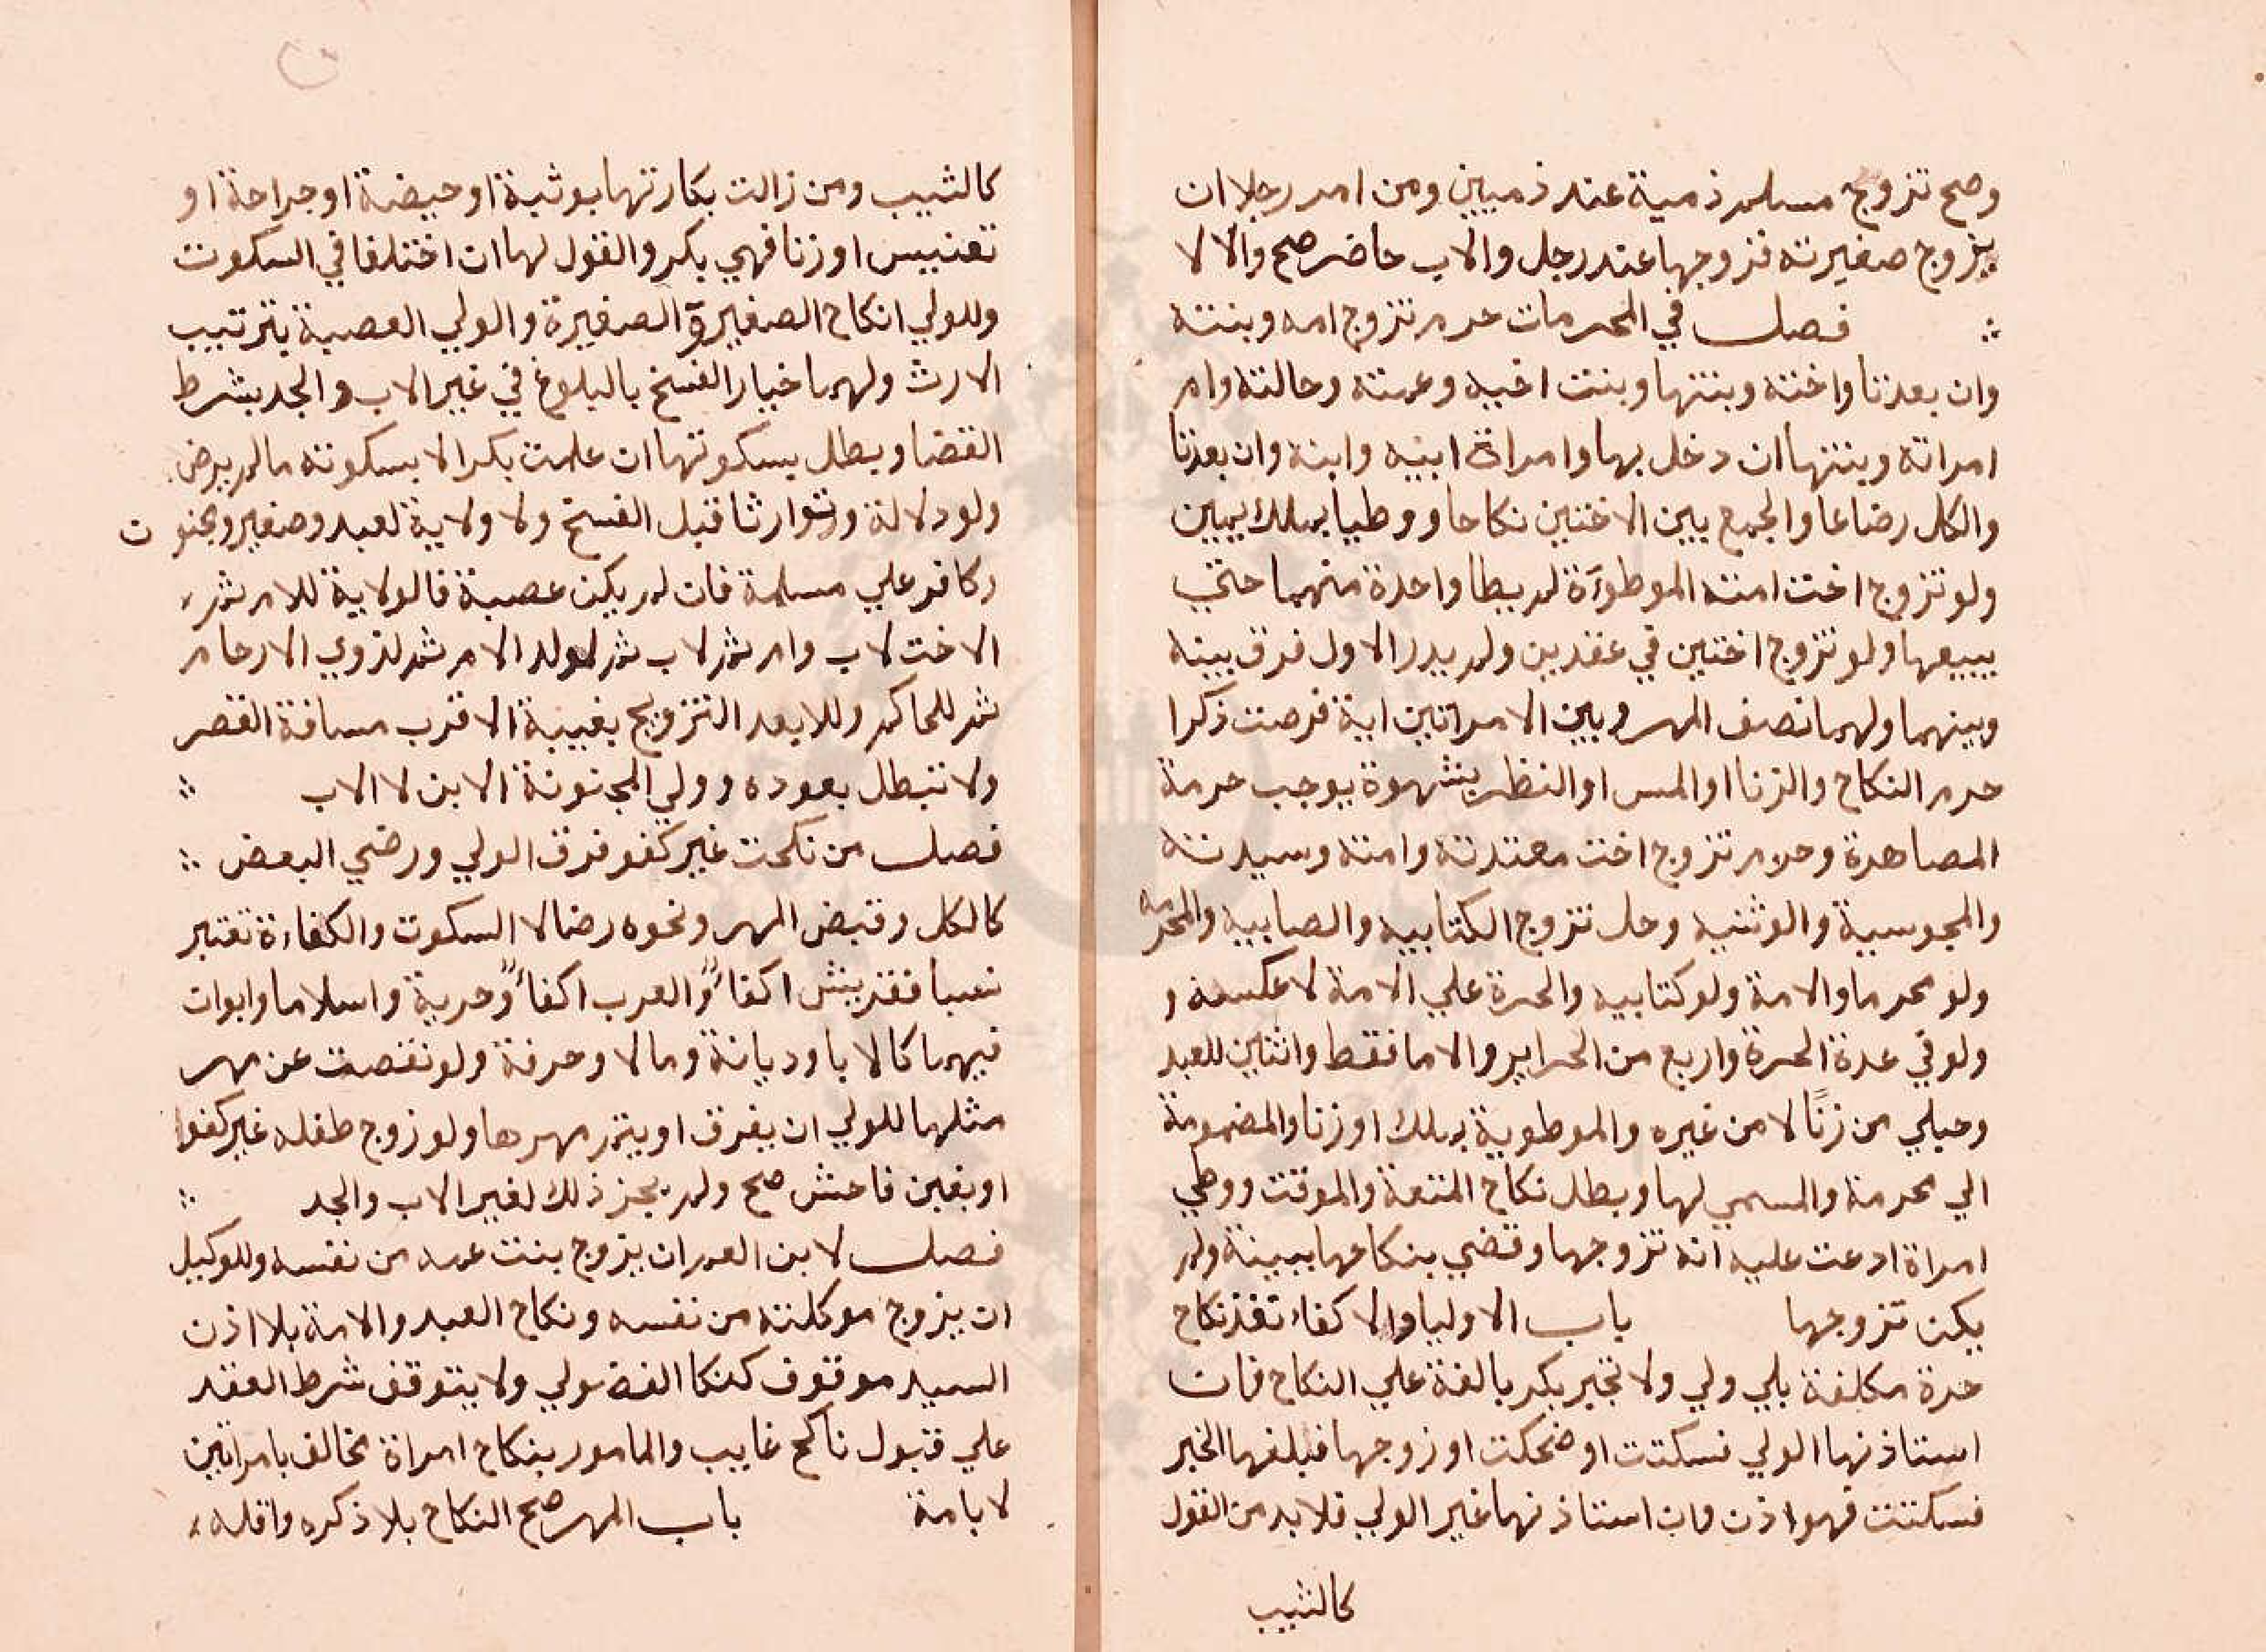 وصح تزوج مسلم ذمية عند ذميين ومن امر رجلا ان
يزوج صغيرته فزوجها عند رجل والاب حاضر صح والا لا
فصل في المحرمات حرم تزوج امه وبنته
وان بعدتا واخته وبنتها وبنت اخيه وعمته وخالته وام
امراته وبنتها ان دخل بها وامراة ابيه وابنه وان بعدتا
والكل رضاعا والجمع بين الاختين نكاحا ووطيا بملك يمين
ولو تزوج اخت امته الموطوءة لم يطا واحدة منهما حتي
يبيعها ولو تزوج اختين في عقدين ولم يدر الاول فرق بينه
وبينهما ولهما نصف المهر وبين الامراتين اية فرضت ذكرا
حرم النكاح والزنا او المس او النظر بشهوة يوجب حرمة
المصاهرة وحرم تزوج اخت معتدته وامته وسيدته
والمجوسية والوثنيه وحل تزوج الكتابيه والصابيه والمحرمه
ولو محرما والامة ولو كتابيه والحرة علي الامة لا عكسه و
ولو في عدة الحرة واربع من الحراير والاما فقط واثنتين للعبد
وحبلي من زنًا لا من غيره والموطوية بملك او زنا والمضمومة
الي محرمة والمسمي لها وبطل نكاح المتعة والموقت ووطي
امراة ادعت عليه انه تزوجها وقضي بنكاحها ببينة ولم
يكن تزوجها باب الاوليا والاكفاء نفذ نكاح
حرة مكلفة بلي ولي ولا تجبر بكر بالغة علي النكاح فان
استاذنها الولي فسكتت او ضحكت او زوجها فبلغها الخبر
فسكتت فهو اذن وان استاذنها غير الولي فلا بد من القول
كالثيب
كالثيب ومن زالت بكارتها بوثبة او حيضة او جراحة او
تعنيس او زنا فهي بكر والقول لها ان اختلفا في السكوت
وللولي انكاح الصغير والصغيرة والولي العصبة بترتيب
الارث ولهما خيار الفسخ بالبلوغ في غير الاب والجد بشرط
القضا وبطل بسكوتها ان علمت بكرا لا بسكوته مالم يرض
ولو دلالة وتوارثا قبل الفسخ ولا ولاية لعبد وصغير ومجنون
وكافر علي مسلمة فان لم يكن عصبة فالولاية للام ثم
الاخت لاب وام ثم لاب ثم لولد الام ثم لذوي الارحام
ثم للحاكم وللابعد التزويج بغيبة الاقرب مسافة القصر
ولا تبطل بعوده وولي المجنونة الابن لا الاب
فصل من نكحت غير كفو فرق الولي ورضي البعض
كالكل وقبض المهر ونحوه رضا لا السكوت والكفاءة تعتبر
نسبا فقريش اكفاءٌ والعرب اكفاءٌ وحرية واسلاما وابوان
فيهما كالابا وديانة ومالا وحرفة ولو نقصت عن مهر
مثلها للولي ان يفرق او يتم مهرها ولو زوج طفله غير كفوا
او بغبن فاحش صح ولم يجز ذلك لغير الاب والجد
فصل لابن العم ان يزوج بنت عمه من نفسه وللوكيل
ان يزوج موكلته من نفسه ونكاح العبد والامة بلا اذن
السيد موقوف كنكا الفضولي ولا يتوقف شرط العقد
علي قبول ناكح غايب والمامور بنكاح امراة مخالف بامراتين
لا بامة باب المهر صح النكاح بلا ذكره واقله